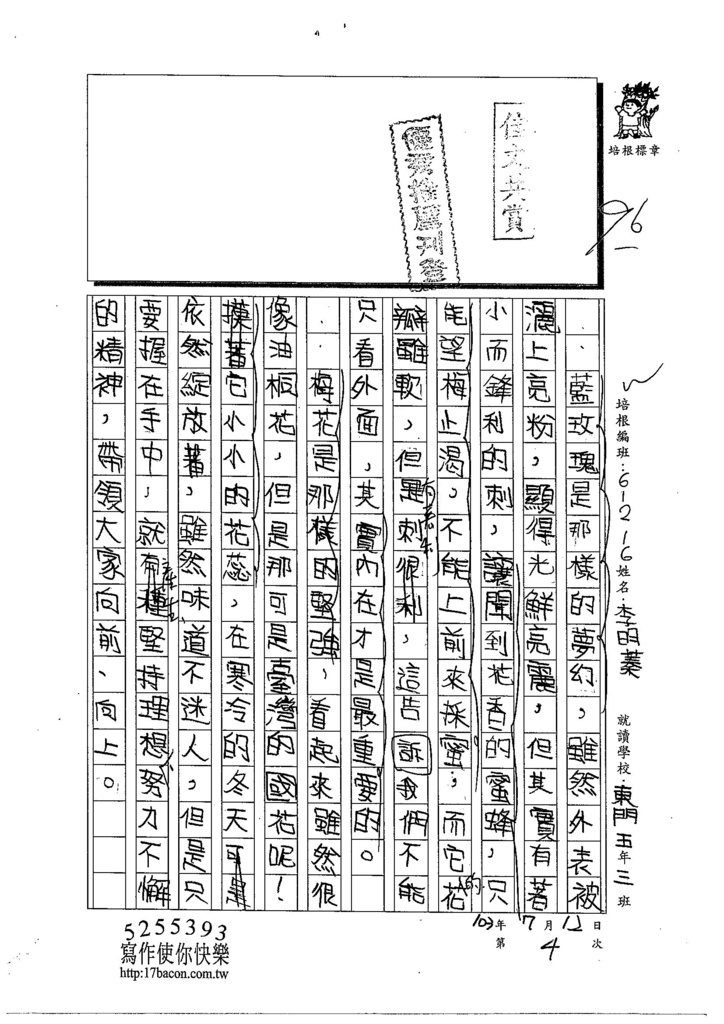 培根標章
佳文共賞
優秀推薦刊登
96
培根編班：61216 姓名：李明蓁 就讀學校：東門 五年三班
103年7月12日
第4次
藍玫瑰是那樣的夢幻，雖然外表被
灑上亮粉，顯得光鮮亮麗，但其實有著
小而鋒利的刺，讓聞到花香的蜜蜂，只
能望梅止渴，不能上前來採蜜；而它花
的
瓣雖軟，但是刺很利，這告訴我們不能
只看外面，其實內在才是最重要的。
梅花是那樣的堅強，看起來雖然很
像油桐花，但是那可是臺灣的國花呢！
摸著它小小的花蕊，在寒冷的冬天可是
依然綻放著，雖然味道不迷人，但是只
要握在手中，就有種堅持理想努力不懈
的精神，帶領大家向前、向上。
5255393
寫作使你快樂
http:17bacon.com.tw